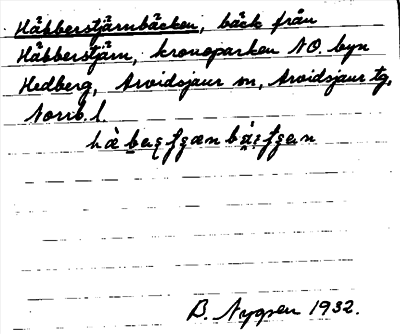 Håbberstjärnbäcken, bäck från
Håbberstjärn, kronoparken NO. byn
Hedberg, Arvidsjaur sn, Arvidsjaur tg,
Norrb. l.
B. Nygren 1932.